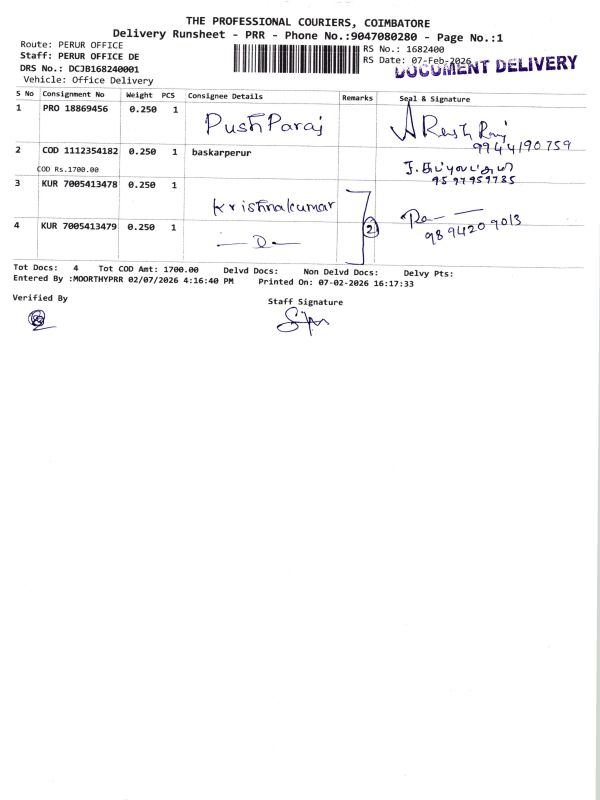 THE PROFESSIONAL COURIERS, COIMBATORE
Delivery Runsheet - PRR - Phone No.:9047080280 - Page No.:1
Route: PERUR OFFICE
RS No.: 1682400
Staff: PERUR OFFICE DE
RS Date: 07-Feb-2026
DOCUMENT DELIVERY
DRS No.: DCJB168240001
Vehicle: Office Delivery
S No Consignment No Weight PCS Consignee Details Remarks Seal & Signature
1 PRO 18869456 0.250 1 PushParaj
9944190759
2 COD 1112354182 0.250 1 baskarperur
COD Rs.1700.00
9597959785
3 KUR 7005413478 0.250 1 Krishnakumar
4 KUR 7005413479 0.250 1 — D — 2
9894209013
Tot Docs: 4 Tot COD Amt: 1700.00 Delvd Docs: Non Delvd Docs: Delvy Pts:
Entered By :MOORTHYPRR 02/07/2026 4:16:40 PM Printed On: 07-02-2026 16:17:33
Verified By
Staff Signature